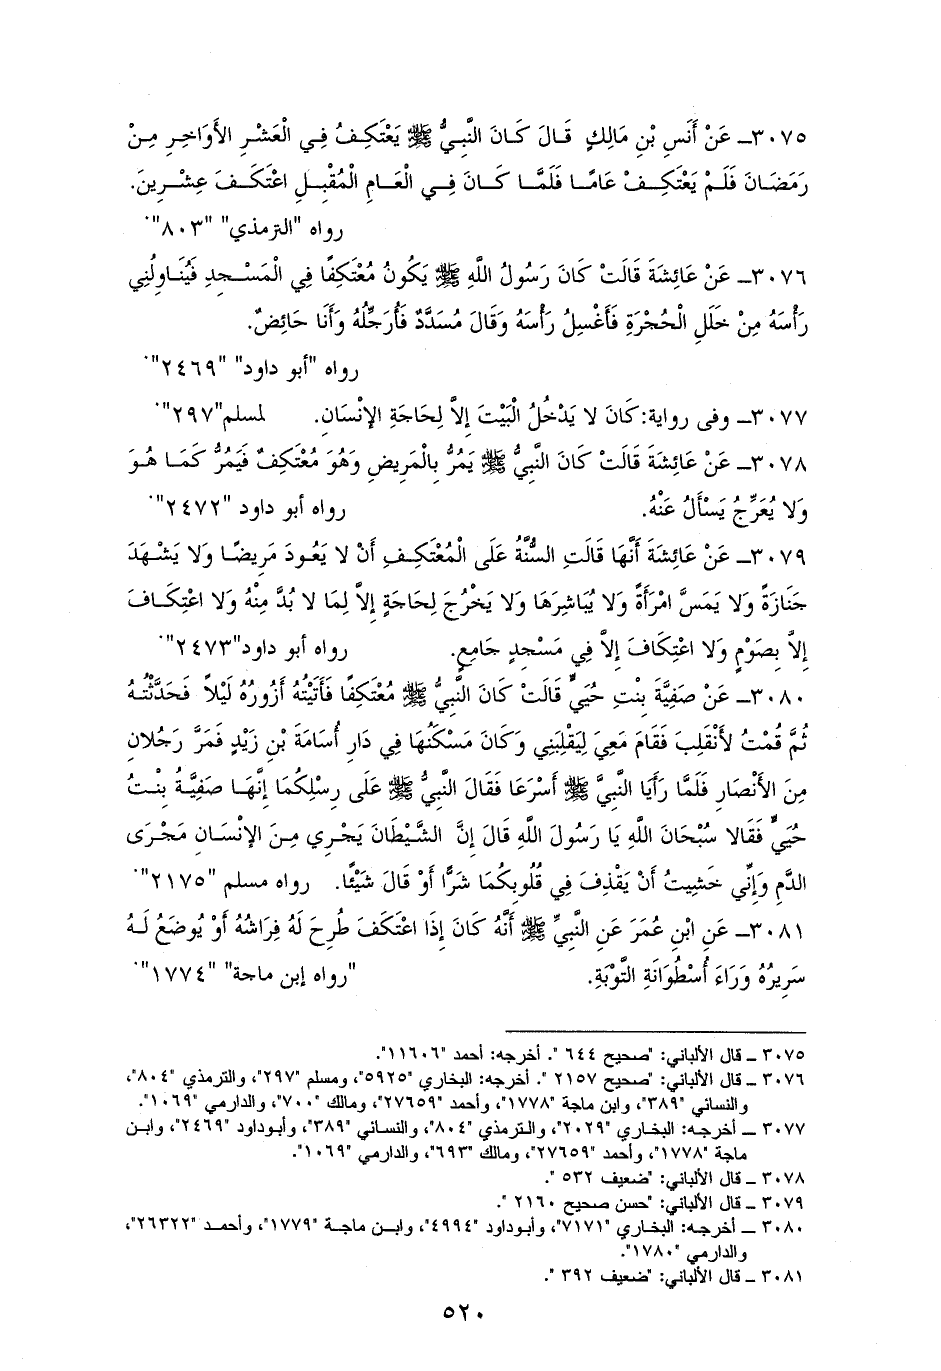 ٣٠٧٥ـ عَنْ أَنَسِ بْنِ مَالِكٍ قَالَ كَانَ النَّبِيُّ ﷺ يَعْتَكِفُ فِي الْعَشْرِ الأَوَاخِرِ مِنْ
رَمَضَانَ فَلَمْ يَعْتَكِفْ عَامًا فَلَمَّا كَانَ فِي الْعَامِ الْمُقْبِلِ اعْتَكَفَ عِشْرِينَ.
رواه "الترمذي" "٨٠٣".
٣٠٧٦ـ عَنْ عَائِشَةَ قَالَتْ كَانَ رَسُولُ اللَّهِ ﷺ يَكُونُ مُعْتَكِفًا فِي الْمَسْجِدِ فَيُنَاوِلُنِي
رَأْسَهُ مِنْ خَلَلِ الْحُجْرَةِ فَأَغْسِلُ رَأْسَهُ وَقَالَ مُسَدَّدٌ فَأُرَجِّلُهُ وَأَنَا حَائِضٌ.
رواه "أبو داود" "٢٤٦٩".
٣٠٧٧ـ وفى رواية: كَانَ لا يَدْخُلُ الْبَيْتَ إِلاَّ لِحَاجَةِ الإِنْسَانِ. لمسلم"٢٩٧".
٣٠٧٨ـ عَنْ عَائِشَةَ قَالَتْ كَانَ النَّبِيُّ ﷺ يَمُرُّ بِالْمَرِيضِ وَهُوَ مُعْتَكِفٌ فَيَمُرُّ كَمَا هُوَ
وَلا يُعَرِّجُ يَسْأَلُ عَنْهُ. رواه أبو داود "٢٤٧٢".
٣٠٧٩ـ عَنْ عَائِشَةَ أَنَّهَا قَالَتِ السُّنَّةُ عَلَى الْمُعْتَكِفِ أَنْ لا يَعُودَ مَرِيضًا وَلا يَشْهَدَ
جَنَازَةً وَلا يَمَسَّ امْرَأَةً وَلا يُبَاشِرَهَا وَلا يَخْرُجَ لِحَاجَةٍ إِلاَّ لِمَا لا بُدَّ مِنْهُ وَلا اعْتِكَافَ
إِلاَّ بِصَوْمٍ وَلا اعْتِكَافَ إِلاَّ فِي مَسْجِدٍ جَامِعٍ. رواه أبو داود"٢٤٧٣".
٣٠٨٠ـ عَنْ صَفِيَّةَ بِنْتِ حُيَيٍّ قَالَتْ كَانَ النَّبِيُّ ﷺ مُعْتَكِفًا فَأَتَيْتُهُ أَزُورُهُ لَيْلاً فَحَدَّثْتُهُ
ثُمَّ قُمْتُ لأَنْقَلِبَ فَقَامَ مَعِيَ لِيَقْلِبَنِي وَكَانَ مَسْكَنُهَا فِي دَارِ أُسَامَةَ بْنِ زَيْدٍ فَمَرَّ رَجُلانِ
مِنَ الأَنْصَارِ فَلَمَّا رَأَيَا النَّبِيَّ ﷺ أَسْرَعَا فَقَالَ النَّبِيُّ ﷺ عَلَى رِسْلِكُمَا إِنَّهَا صَفِيَّةُ بِنْتُ
حُيَيٍّ فَقَالا سُبْحَانَ اللَّهِ يَا رَسُولَ اللَّهِ قَالَ إِنَّ الشَّيْطَانَ يَجْرِي مِنَ الإِنْسَانِ مَجْرَى
الدَّمِ وَإِنِّي خَشِيتُ أَنْ يَقْذِفَ فِي قُلُوبِكُمَا شَرًّا أَوْ قَالَ شَيْئًا. رواه مسلم "٢١٧٥".
٣٠٨١ـ عَنِ ابْنِ عُمَرَ عَنِ النَّبِيِّ ﷺ أَنَّهُ كَانَ إِذَا اعْتَكَفَ طُرِحَ لَهُ فِرَاشُهُ أَوْ يُوضَعُ لَهُ
سَرِيرُهُ وَرَاءَ أُسْطُوَانَةِ التَّوْبَةِ. "رواه إبن ماجة" "١٧٧٤".
٣٠٧٥ ـ قال الألباني: "صحيح ٦٤٤ ". أخرجه: أحمد "١١٦٠٦".
٣٠٧٦ ـ قال الألباني: "صحيح ٢١٥٧ ". أخرجه: البخاري "٥٩٢٥"، ومسلم "٢٩٧"، والترمذي "٨٠٤"،
والنسائي "٣٨٩"، وابن ماجة "١٧٧٨"، وأحمد "٢٧٦٥٩"، ومالك "٧٠٠"، والدارمي "١٠٦٩".
٣٠٧٧ ـ أخرجه: البخاري "٢٠٢٩"، والترمذي "٨٠٤"، والنسائي "٣٨٩"، وأبوداود "٢٤٦٩"، وابن
ماجة "١٧٧٨"، وأحمد "٢٧٦٥٩"، ومالك "٦٩٣"، والدارمي "١٠٦٩".
٣٠٧٨ ـ قال الألباني: "ضعيف ٥٣٢ ".
٣٠٧٩ ـ قال الألباني: "حسن صحيح ٢١٦٠ ".
٣٠٨٠ ـ أخرجه: البخاري "٧١٧١"، وأبوداود "٤٩٩٤"، وابن ماجة "١٧٧٩"، وأحمد "٢٦٣٢٢"،
والدارمي "١٧٨٠".
٣٠٨١ ـ قال الألباني: "ضعيف ٣٩٢ ".
٥٢٠